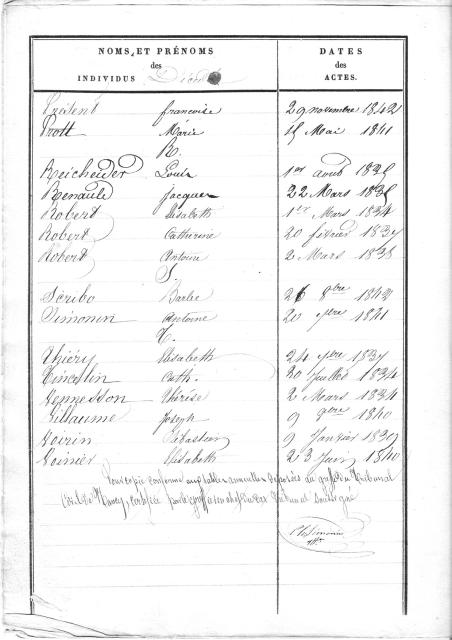 NOMS, ET PRÉNOMS
des
INDIVIDUS Décédés
DATES
des
ACTES.
françoise 29 novembre 1842
Prott Marie 15 Mai 1841
R.
Louis 1er août 1835
Renauld Jacques 22 Mars 1835
Robert Elisabeth 1er Mars 1834
Robert Catherine 20 février 1837
Robert Antoine 2 Mars 1838
S.
Scribo Barbe 26 8bre 1842
Simonin Antoine 20 1841
T.
Thiéry Elisabeth 24 1837
Cath. 30 Juillet 1834
Thérèse 2 Mars 1834
Joseph 9 9bre 1840
Sébastien 9 Janvier 1839
Voinier Elisabeth 23 Juin 1840
Pour copie conforme aux tables annuelles déposées au greffe du Tribunal
Civil de Nancy, par le greffier en chef du Tribunal soussigné